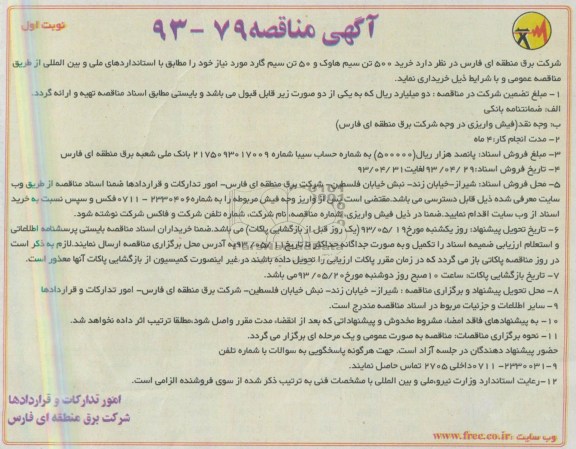 آگهی مناقصه ۷۹ -۹۳
نوبت اول
شرکت برق منطقه ای فارس در نظر دارد خرید ۵۰۰ تن سیم هاوک و ۵۰ تن سیم گارد مورد نیاز خود را مطابق با استانداردهای ملی و بین المللی از طریق
مناقصه عمومی و با شرایط ذیل خریداری نماید.
۱- مبلغ تضمین شرکت در مناقصه : دو میلیارد ریال که به یکی از دو صورت زیر قابل قبول می باشد و بایستی مطابق اسناد مناقصه تهیه و ارائه گردد.
الف: ضمانتنامه بانکی
ب: وجه نقد(فیش واریزی در وجه شرکت برق منطقه ای فارس)
۲- مدت انجام کار:۴ ماه
۳- مبلغ فروش اسناد: پانصد هزار ریال(۵۰۰۰۰۰) به شماره حساب سیبا شماره ۲۱۷۵۰۹۳۰۱۷۰۰۹ بانک ملی شعبه برق منطقه ای فارس
۴- تاریخ فروش اسناد:۹۳/۰۴/۲۹ لغایت۹۳/۰۴/۳۱
۵- محل فروش اسناد: شیراز-خیابان زند- نبش خیابان فلسطین- شرکت برق منطقه ای فارس- امور تدارکات و قراردادها ضمنا اسناد مناقصه از طریق وب
سایت معرفی شده ذیل قابل دسترسی می باشد.مقتضی است پس از واریز وجه فیش مربوطه را به شماره۲۳۳۰۴۰۶-۰۷۱۱ فکس و سپس نسبت به خرید
اسناد از وب سایت اقدام نمایید.ضمنا در ذیل فیش واریزی، شماره مناقصه، نام شرکت، شماره تلفن شرکت و فاکس شرکت نوشته شود.
۶- تاریخ تحویل پیشنهاد: روز یکشنبه مورخ۹۳/۰۵/۱۹ (یک روز قبل از بازگشایی پاکات) می باشد.ضمنا خریداران اسناد مناقصه بایستی پرسشنامه اطلاعاتی
و استعلام ارزیابی ضمیمه اسناد را تکمیل و به صورت جداگانه حداکثر تا تاریخ به آدرس محل برگزاری مناقصه ارسال نمایند.لازم به ذکر است
در روز مناقصه پاکاتی باز می گردد که در زمان مقرر پاکات ارزیابی را تحویل داده باشند در غیر اینصورت کمیسیون از بازگشایی پاکات آنها معذور است.
۷- تاریخ بازگشایی پاکات: ساعت ۱۰صبح روز دوشنبه مورخ۹۳/۰۵/۲۰ می باشد.
۸- محل تحویل پیشنهاد و برگزاری مناقصه : شیراز- خیابان زند- نبش خیابان فلسطین- شرکت برق منطقه ای فارس- امور تدارکات و قراردادها
۹- سایر اطلاعات و جزئیات مربوط در اسناد مناقصه مندرج است.
۱۰- به پیشنهادهای فاقد امضا، مشروط مخدوش و پیشنهاداتی که بعد از انقضا، مدت مقرر واصل شود،مطلقا ترتیب اثر داده نخواهد شد.
۱۱- نحوه برگزاری مناقصات: مناقصه به صورت عمومی و یک مرحله ای برگزار می گردد.
حضور پیشنهاد دهندگان در جلسه آزاد است. جهت هرگونه پاسخگویی به سوالات با شماره تلفن
۹-۲۳۳۰۰۳۱-۰۷۱۱ داخلی ۲۷۰۵ تماس حاصل نمایند.
۱۲-رعایت استاندارد وزارت نیرو،ملی و بین المللی با مشخصات فنی به ترتیب ذکر شده از سوی فروشنده الزامی است.
امور تدارکات و قراردادها
شرکت برق منطقه ای فارس
وب سایت :www.frec.co.ir